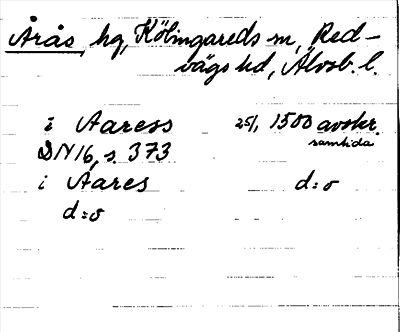 Årås, hg, Kölingareds sn, Red-
vägs hd, Älvsb. l.
i Aaress 25/1 1500 avskr.
samtida
DN 16, s. 373
i Aares d:o
d:o